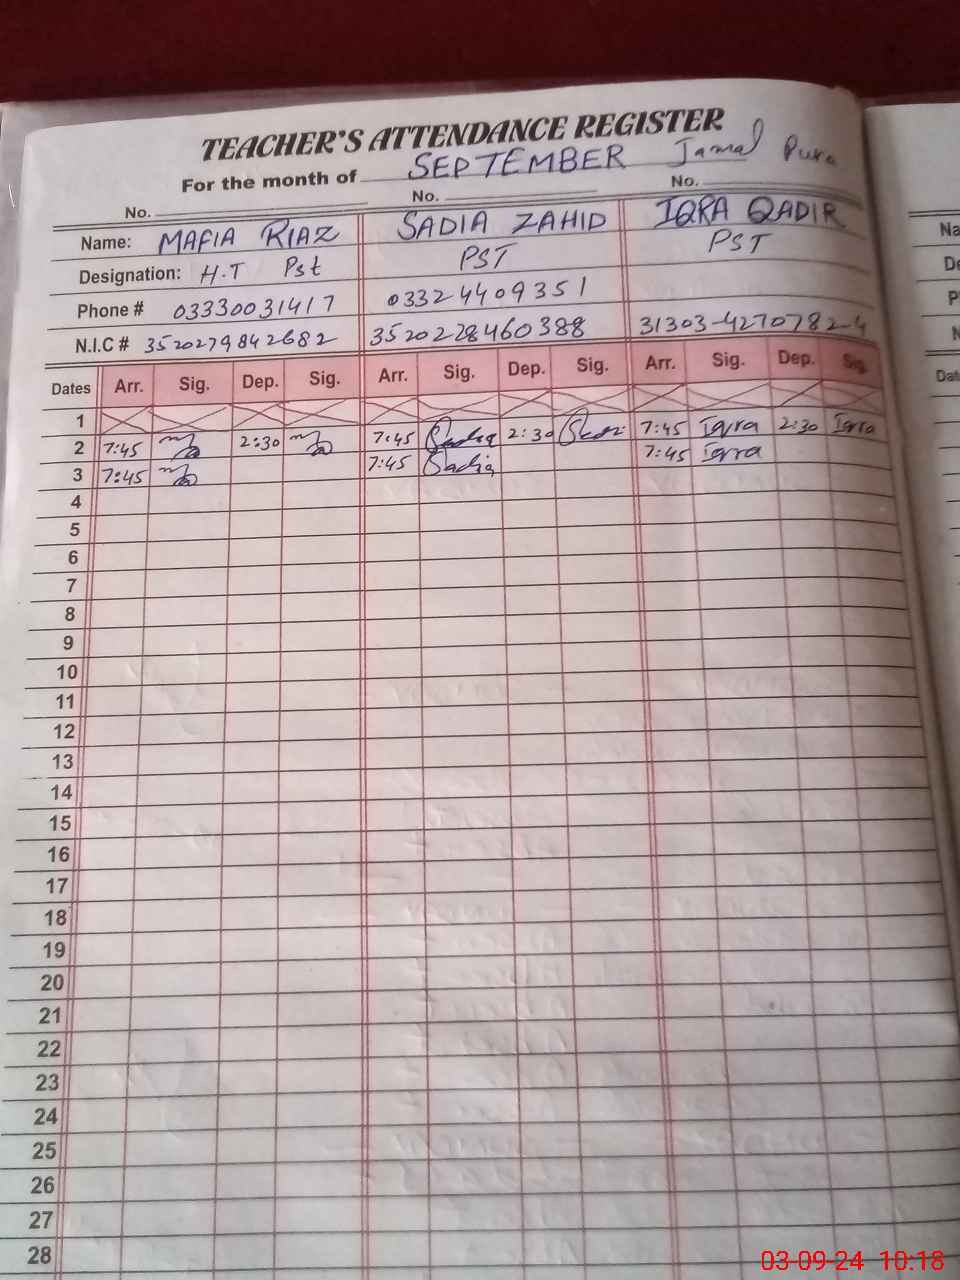 TEACHER'S ATTENDANCE REGISTER
For the month of SEPTEMBER Jamal Pura
No. No. No.
Name: MAFIA RIAZ SADIA ZAHID IQRA QADIR
Designation: H.T Pst PST PST
Phone # 03330031417 03324409351
N.I.C # 3520279842682 3520228460388 31303-4270782-4
Dates Arr. Sig. Dep. Sig. Arr. Sig. Dep. Sig. Arr. Sig. Dep. Sig.
1
2 7:45 2:30 7:45 Sadia 2:30 7:45 Iqra 2:30 Iqra
3 7:45 7:45 Sadia 7:45 Iqra
4
5
6
7
8
9
10
11
12
13
14
15
16
17
18
19
20
21
22
23
24
25
26
27
28
Na
De
P
N
Dat
03-09-24 10:18